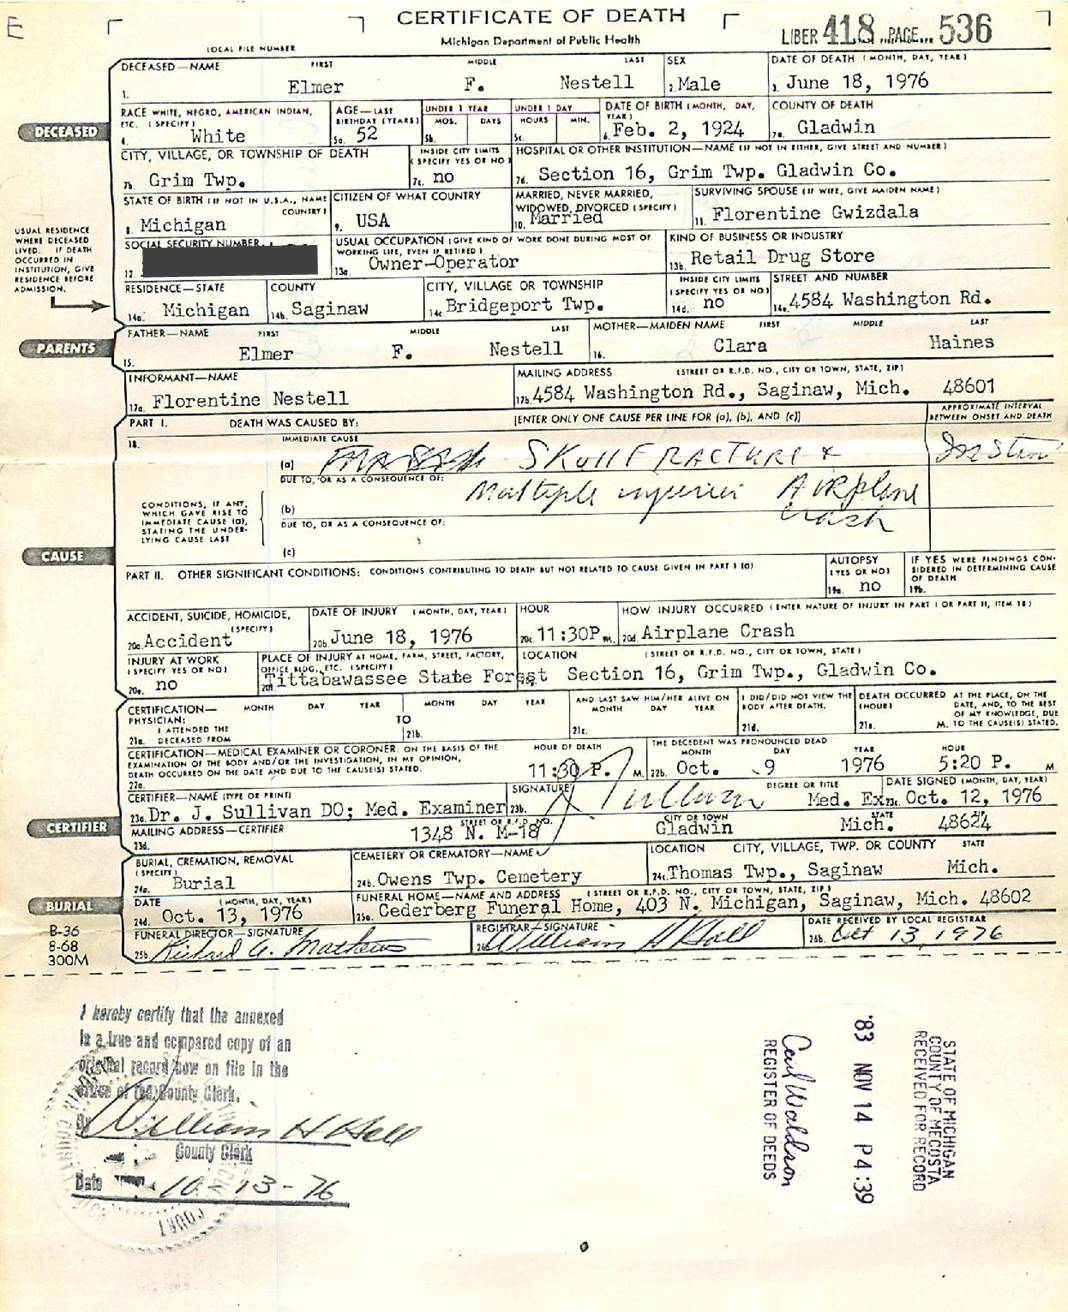 E
CERTIFICATE OF DEATH
Michigan Department of Public Health
LIBER 418 PAGE 536
LOCAL FILE NUMBER
DECEASED—NAME FIRST MIDDLE LAST SEX DATE OF DEATH (MONTH, DAY, YEAR)
1. Elmer F. Nestell 2. Male 3. June 18, 1976
DECEASED
RACE WHITE, NEGRO, AMERICAN INDIAN, ETC. (SPECIFY) AGE—LAST BIRTHDAY (YEARS) UNDER 1 YEAR MOS. DAYS UNDER 1 DAY HOURS MIN. DATE OF BIRTH (MONTH, DAY, YEAR) COUNTY OF DEATH
4. White 5a. 52 5b. 5c. 6. Feb. 2, 1924 7a. Gladwin
CITY, VILLAGE, OR TOWNSHIP OF DEATH INSIDE CITY LIMITS (SPECIFY YES OR NO) HOSPITAL OR OTHER INSTITUTION—NAME (IF NOT IN EITHER, GIVE STREET AND NUMBER)
7b. Grim Twp. 7c. no 7d. Section 16, Grim Twp. Gladwin Co.
STATE OF BIRTH (IF NOT IN U.S.A., NAME COUNTRY) CITIZEN OF WHAT COUNTRY MARRIED, NEVER MARRIED, WIDOWED, DIVORCED (SPECIFY) SURVIVING SPOUSE (IF WIFE, GIVE MAIDEN NAME)
8. Michigan 9. USA 10. Married 11. Florentine Gwizdala
USUAL RESIDENCE
WHERE DECEASED
LIVED. IF DEATH
OCCURRED IN
INSTITUTION, GIVE
RESIDENCE BEFORE
ADMISSION.
SOCIAL SECURITY NUMBER USUAL OCCUPATION (GIVE KIND OF WORK DONE DURING MOST OF WORKING LIFE, EVEN IF RETIRED) KIND OF BUSINESS OR INDUSTRY
12. 13a. Owner-Operator 13b. Retail Drug Store
RESIDENCE—STATE COUNTY CITY, VILLAGE OR TOWNSHIP INSIDE CITY LIMITS (SPECIFY YES OR NO) STREET AND NUMBER
14a. Michigan 14b. Saginaw 14c. Bridgeport Twp. 14d. no 14e. 4584 Washington Rd.
PARENTS
FATHER—NAME FIRST MIDDLE LAST MOTHER—MAIDEN NAME FIRST MIDDLE LAST
15. Elmer F. Nestell 16. Clara Haines
INFORMANT—NAME MAILING ADDRESS (STREET OR R.F.D. NO., CITY OR TOWN, STATE, ZIP)
17a. Florentine Nestell 17b. 4584 Washington Rd., Saginaw, Mich. 48601
PART I. DEATH WAS CAUSED BY: [ENTER ONLY ONE CAUSE PER LINE FOR (a), (b), AND (c)] APPROXIMATE INTERVAL BETWEEN ONSET AND DEATH
18. IMMEDIATE CAUSE
(a) SKULL FRACTURE &
DUE TO, OR AS A CONSEQUENCE OF:
(b) Multiple injuries Airplane crash
CONDITIONS, IF ANY,
WHICH GAVE RISE TO
IMMEDIATE CAUSE (a),
STATING THE UNDER-
LYING CAUSE LAST
DUE TO, OR AS A CONSEQUENCE OF:
(c)
CAUSE
PART II. OTHER SIGNIFICANT CONDITIONS: CONDITIONS CONTRIBUTING TO DEATH BUT NOT RELATED TO CAUSE GIVEN IN PART I (a) AUTOPSY (YES OR NO) IF YES WERE FINDINGS CONSIDERED IN DETERMINING CAUSE OF DEATH
19a. no 19b.
ACCIDENT, SUICIDE, HOMICIDE, (SPECIFY) DATE OF INJURY (MONTH, DAY, YEAR) HOUR HOW INJURY OCCURRED (ENTER NATURE OF INJURY IN PART I OR PART II, ITEM 18)
20a. Accident 20b. June 18, 1976 20c. 11:30P. M. 20d. Airplane Crash
INJURY AT WORK (SPECIFY YES OR NO) PLACE OF INJURY AT HOME, FARM, STREET, FACTORY, OFFICE BLDG., ETC. (SPECIFY) LOCATION (STREET OR R.F.D. NO., CITY OR TOWN, STATE)
20e. no 20f. Tittabawassee State Forest Section 16, Grim Twp., Gladwin Co.
CERTIFICATION—PHYSICIAN: I ATTENDED THE DECEASED FROM MONTH DAY YEAR TO MONTH DAY YEAR AND LAST SAW HIM/HER ALIVE ON MONTH DAY YEAR I DID/DID NOT VIEW THE BODY AFTER DEATH. DEATH OCCURRED (HOUR) AT THE PLACE, ON THE DATE, AND, TO THE BEST OF MY KNOWLEDGE, DUE TO THE CAUSE(S) STATED.
21a. 21b. 21c. 21d. 21e. M.
CERTIFICATION—MEDICAL EXAMINER OR CORONER: ON THE BASIS OF THE EXAMINATION OF THE BODY AND/OR THE INVESTIGATION, IN MY OPINION, DEATH OCCURRED ON THE DATE AND DUE TO THE CAUSE(S) STATED. HOUR OF DEATH THE DECEDENT WAS PRONOUNCED DEAD MONTH DAY YEAR HOUR
22a. 11:30 P. M. 22b. Oct. 9 1976 5:20 P. M
CERTIFIER—NAME (TYPE OR PRINT) SIGNATURE DEGREE OR TITLE DATE SIGNED (MONTH, DAY, YEAR)
23a. Dr. J. Sullivan DO; Med. Examiner 23b. Sullivan Med. Ex. 23c. Oct. 12, 1976
CERTIFIER
MAILING ADDRESS—CERTIFIER STREET OR R.F.D. NO. CITY OR TOWN STATE
23d. 1348 N. M-18 Gladwin Mich. 48624
BURIAL, CREMATION, REMOVAL (SPECIFY) CEMETERY OR CREMATORY—NAME LOCATION CITY, VILLAGE, TWP. OR COUNTY STATE
24a. Burial 24b. Owens Twp. Cemetery 24c. Thomas Twp., Saginaw Mich.
BURIAL
DATE (MONTH, DAY, YEAR) FUNERAL HOME—NAME AND ADDRESS (STREET OR R.F.D. NO., CITY OR TOWN, STATE, ZIP)
24d. Oct. 13, 1976 25a. Cederberg Funeral Home, 403 N. Michigan, Saginaw, Mich. 48602
B-36
8-68
300M
FUNERAL DIRECTOR—SIGNATURE REGISTRAR—SIGNATURE DATE RECEIVED BY LOCAL REGISTRAR
25b. Richard A. Mathews 26a. William H Hall 26b. Oct 13, 1976
I hereby certify that the annexed
is a true and compared copy of an
original record now on file in the
office of the County Clerk.
By William H Hall
County Clerk
Date 10-13-76
COURT
Carl Waldson
REGISTER OF DEEDS
'83 NOV 14 P4:39
STATE OF MICHIGAN
COUNTY OF MECOSTA
RECEIVED FOR RECORD